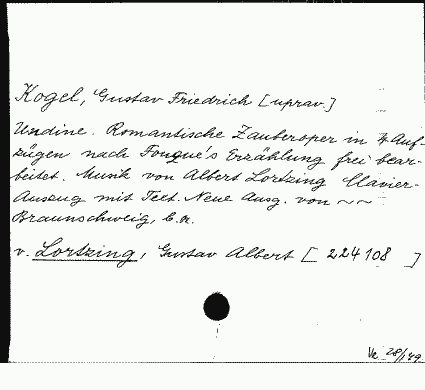 Kogel, Gustav Friedrich [uprav.]
Undine. Romantische Zauberoper in 4 Auf-
zügen nach Fouqué's Erzählung frei bear-
beitet. Musik von Albert Lortzing Clavier-
Auszug mit Text. Neue Ausg. von ~~
Braunschweig, b.r.
v. Lortzing, Gustav Albert [224108]
Ve 28/1 49.